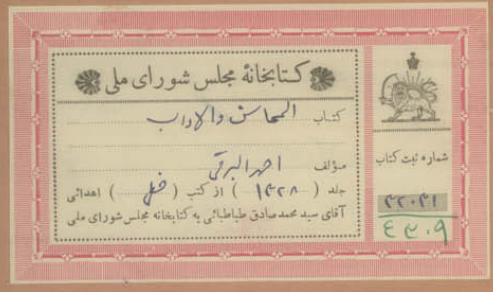 کتابخانهٔ مجلس شورای ملی
کتاب المحاسن والاداب
مؤلف احمد البرقی
جلد ( ۱۴۲۸ ) از کتب ( خطی ) اهدائی
آقای سید محمدصادق طباطبائی به کتابخانه مجلس شورای ملی
شماره ثبت کتاب
۴۳۰۹